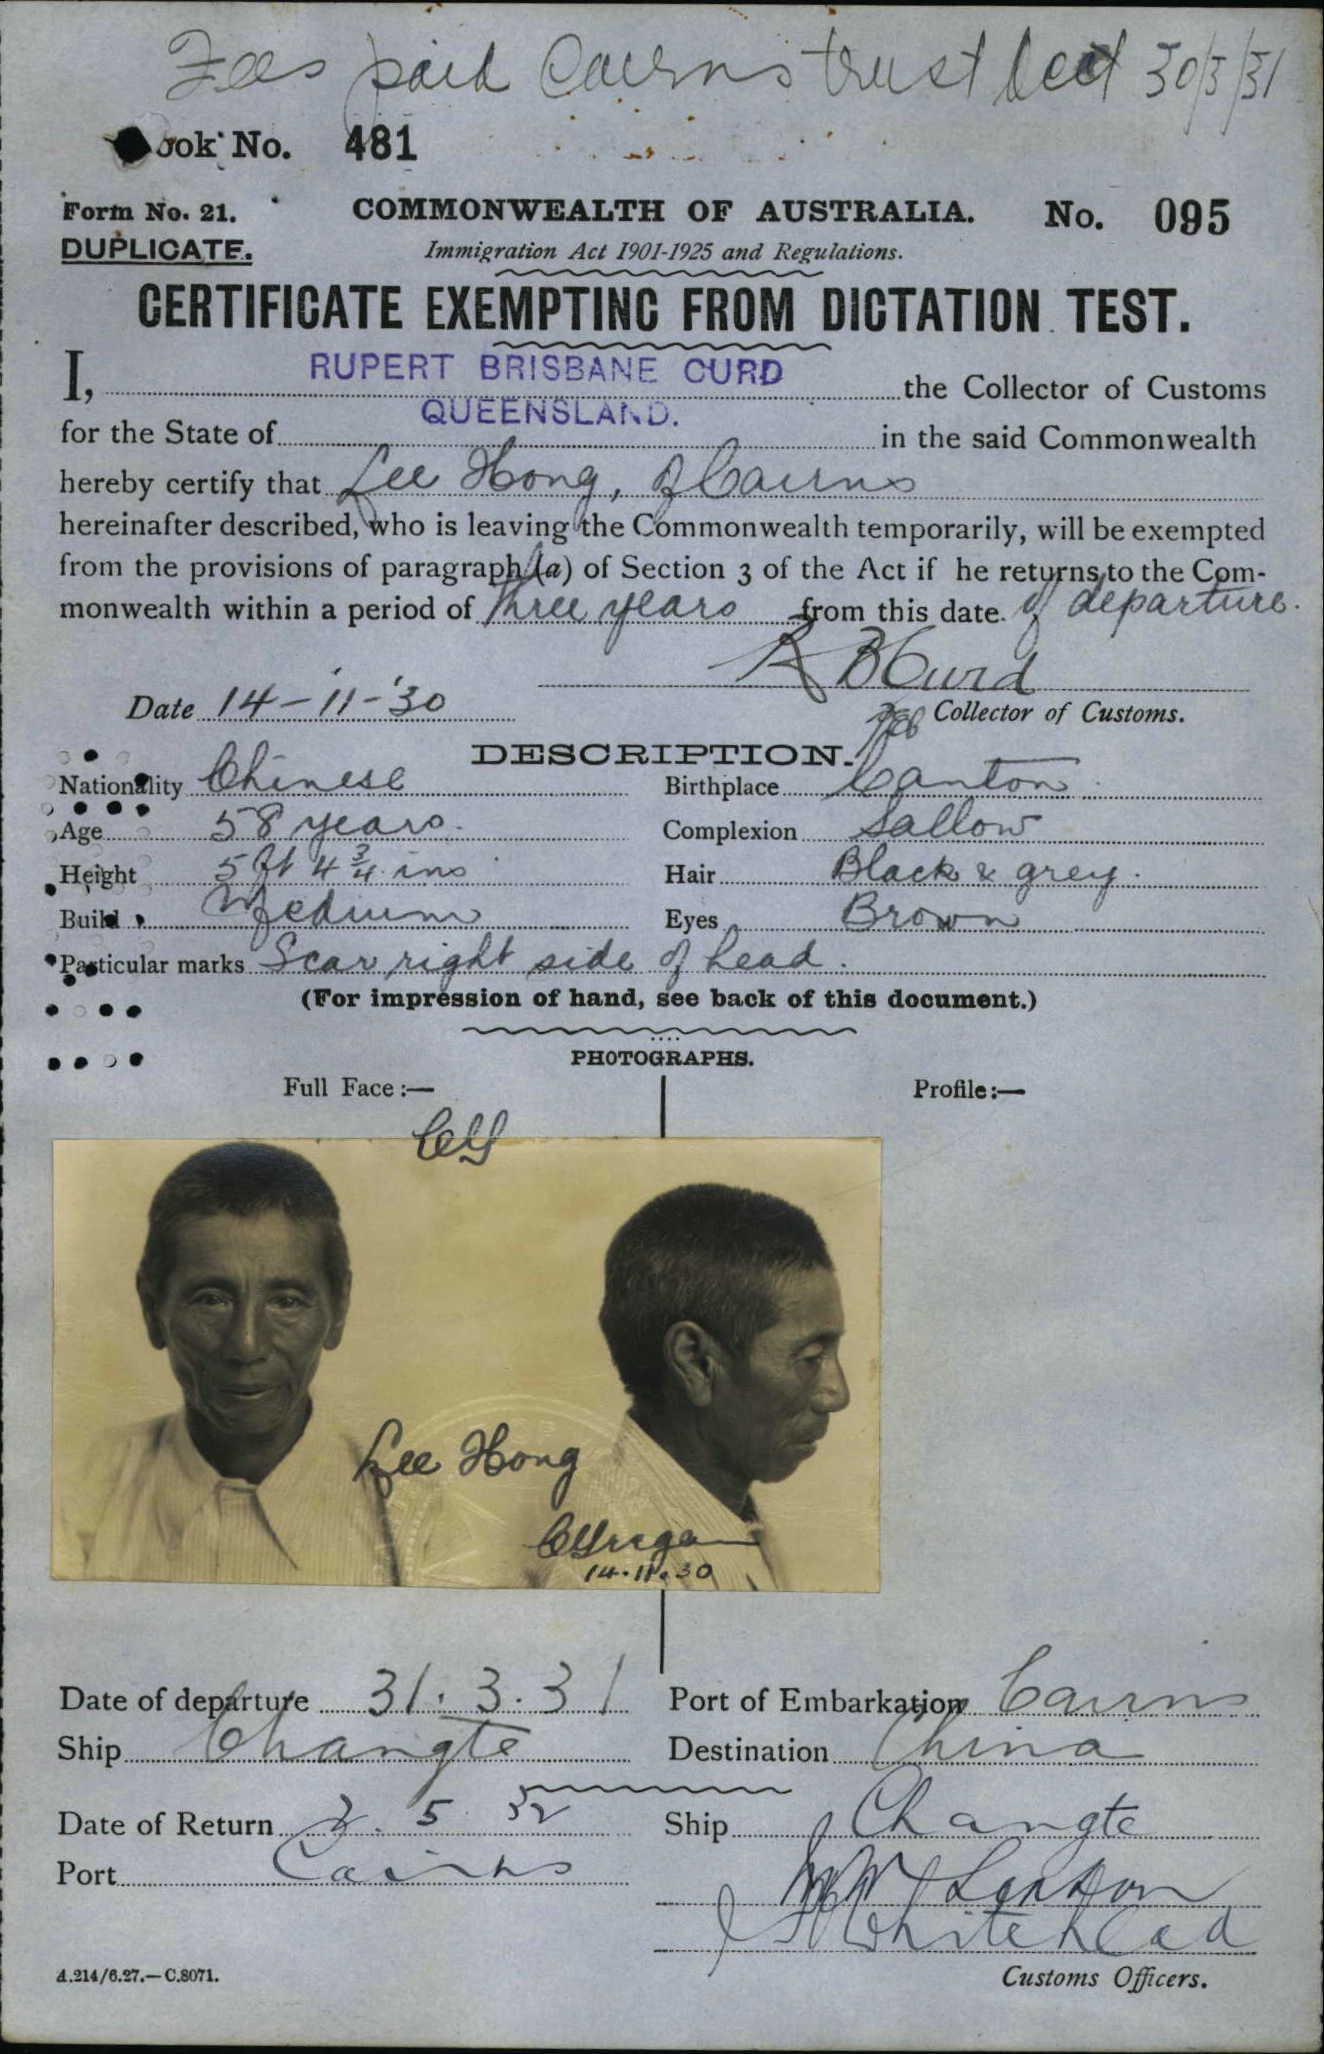 Fees paid Cairns trust acct 30/3/31
ook No. 481
Form No. 21. COMMONWEALTH OF AUSTRALIA. No. 095
DUPLICATE. Immigration Act 1901-1925 and Regulations.
CERTIFICATE EXEMPTING FROM DICTATION TEST.
I, RUPERT BRISBANE CURD the Collector of Customs
for the State of QUEENSLAND. in the said Commonwealth
hereby certify that Lee Hong, of Cairns
hereinafter described, who is leaving the Commonwealth temporarily, will be exempted
from the provisions of paragraph (a) of Section 3 of the Act if he returns to the Com-
monwealth within a period of three years from this date of departure.
R B Curd
Date 14-11-'30 Collector of Customs.
DESCRIPTION.
Nationality Chinese Birthplace Canton
Age 58 years. Complexion Sallow
Height 5 ft 4 3/4 ins Hair Black & grey.
Build Medium Eyes Brown
Particular marks Scar right side of head.
(For impression of hand, see back of this document.)
PHOTOGRAPHS.
Full Face:— Profile:—
Lee Hong
14.11.30
Date of departure 31.3.31 Port of Embarkation Cairns
Ship Changte Destination China
Date of Return 2. 5 32 Ship Changte
Port Cairns
Whitehead
A.214/6.27.—C.8071. Customs Officers.